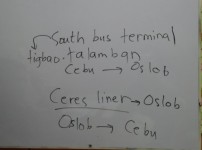 South bus terminal
tigbao. talamban
Cebu → Oslob
Ceres liner → Oslob
Oslob → Cebu